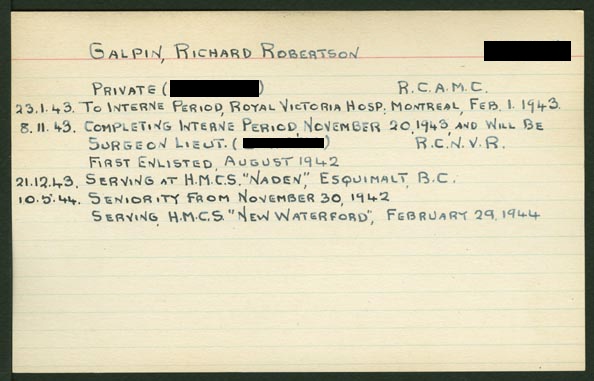 GALPIN, RICHARD ROBERTSON
PRIVATE ( ) R.C.A.M.C.
23.1.43. TO INTERNE PERIOD, ROYAL VICTORIA HOSP. MONTREAL, FEB. 1. 1943.
8.11.43. COMPLETING INTERNE PERIOD, NOVEMBER 20, 1943, AND WILL BE
SURGEON LIEUT. ( ) R.C.N.V.R.
FIRST ENLISTED, AUGUST 1942
21.12.43. SERVING AT H.M.C.S. "NADEN", ESQUIMALT, B.C.
10.5.44. SENIORITY FROM NOVEMBER 30, 1942
SERVING, H.M.C.S. "NEW WATERFORD", FEBRUARY 29, 1944